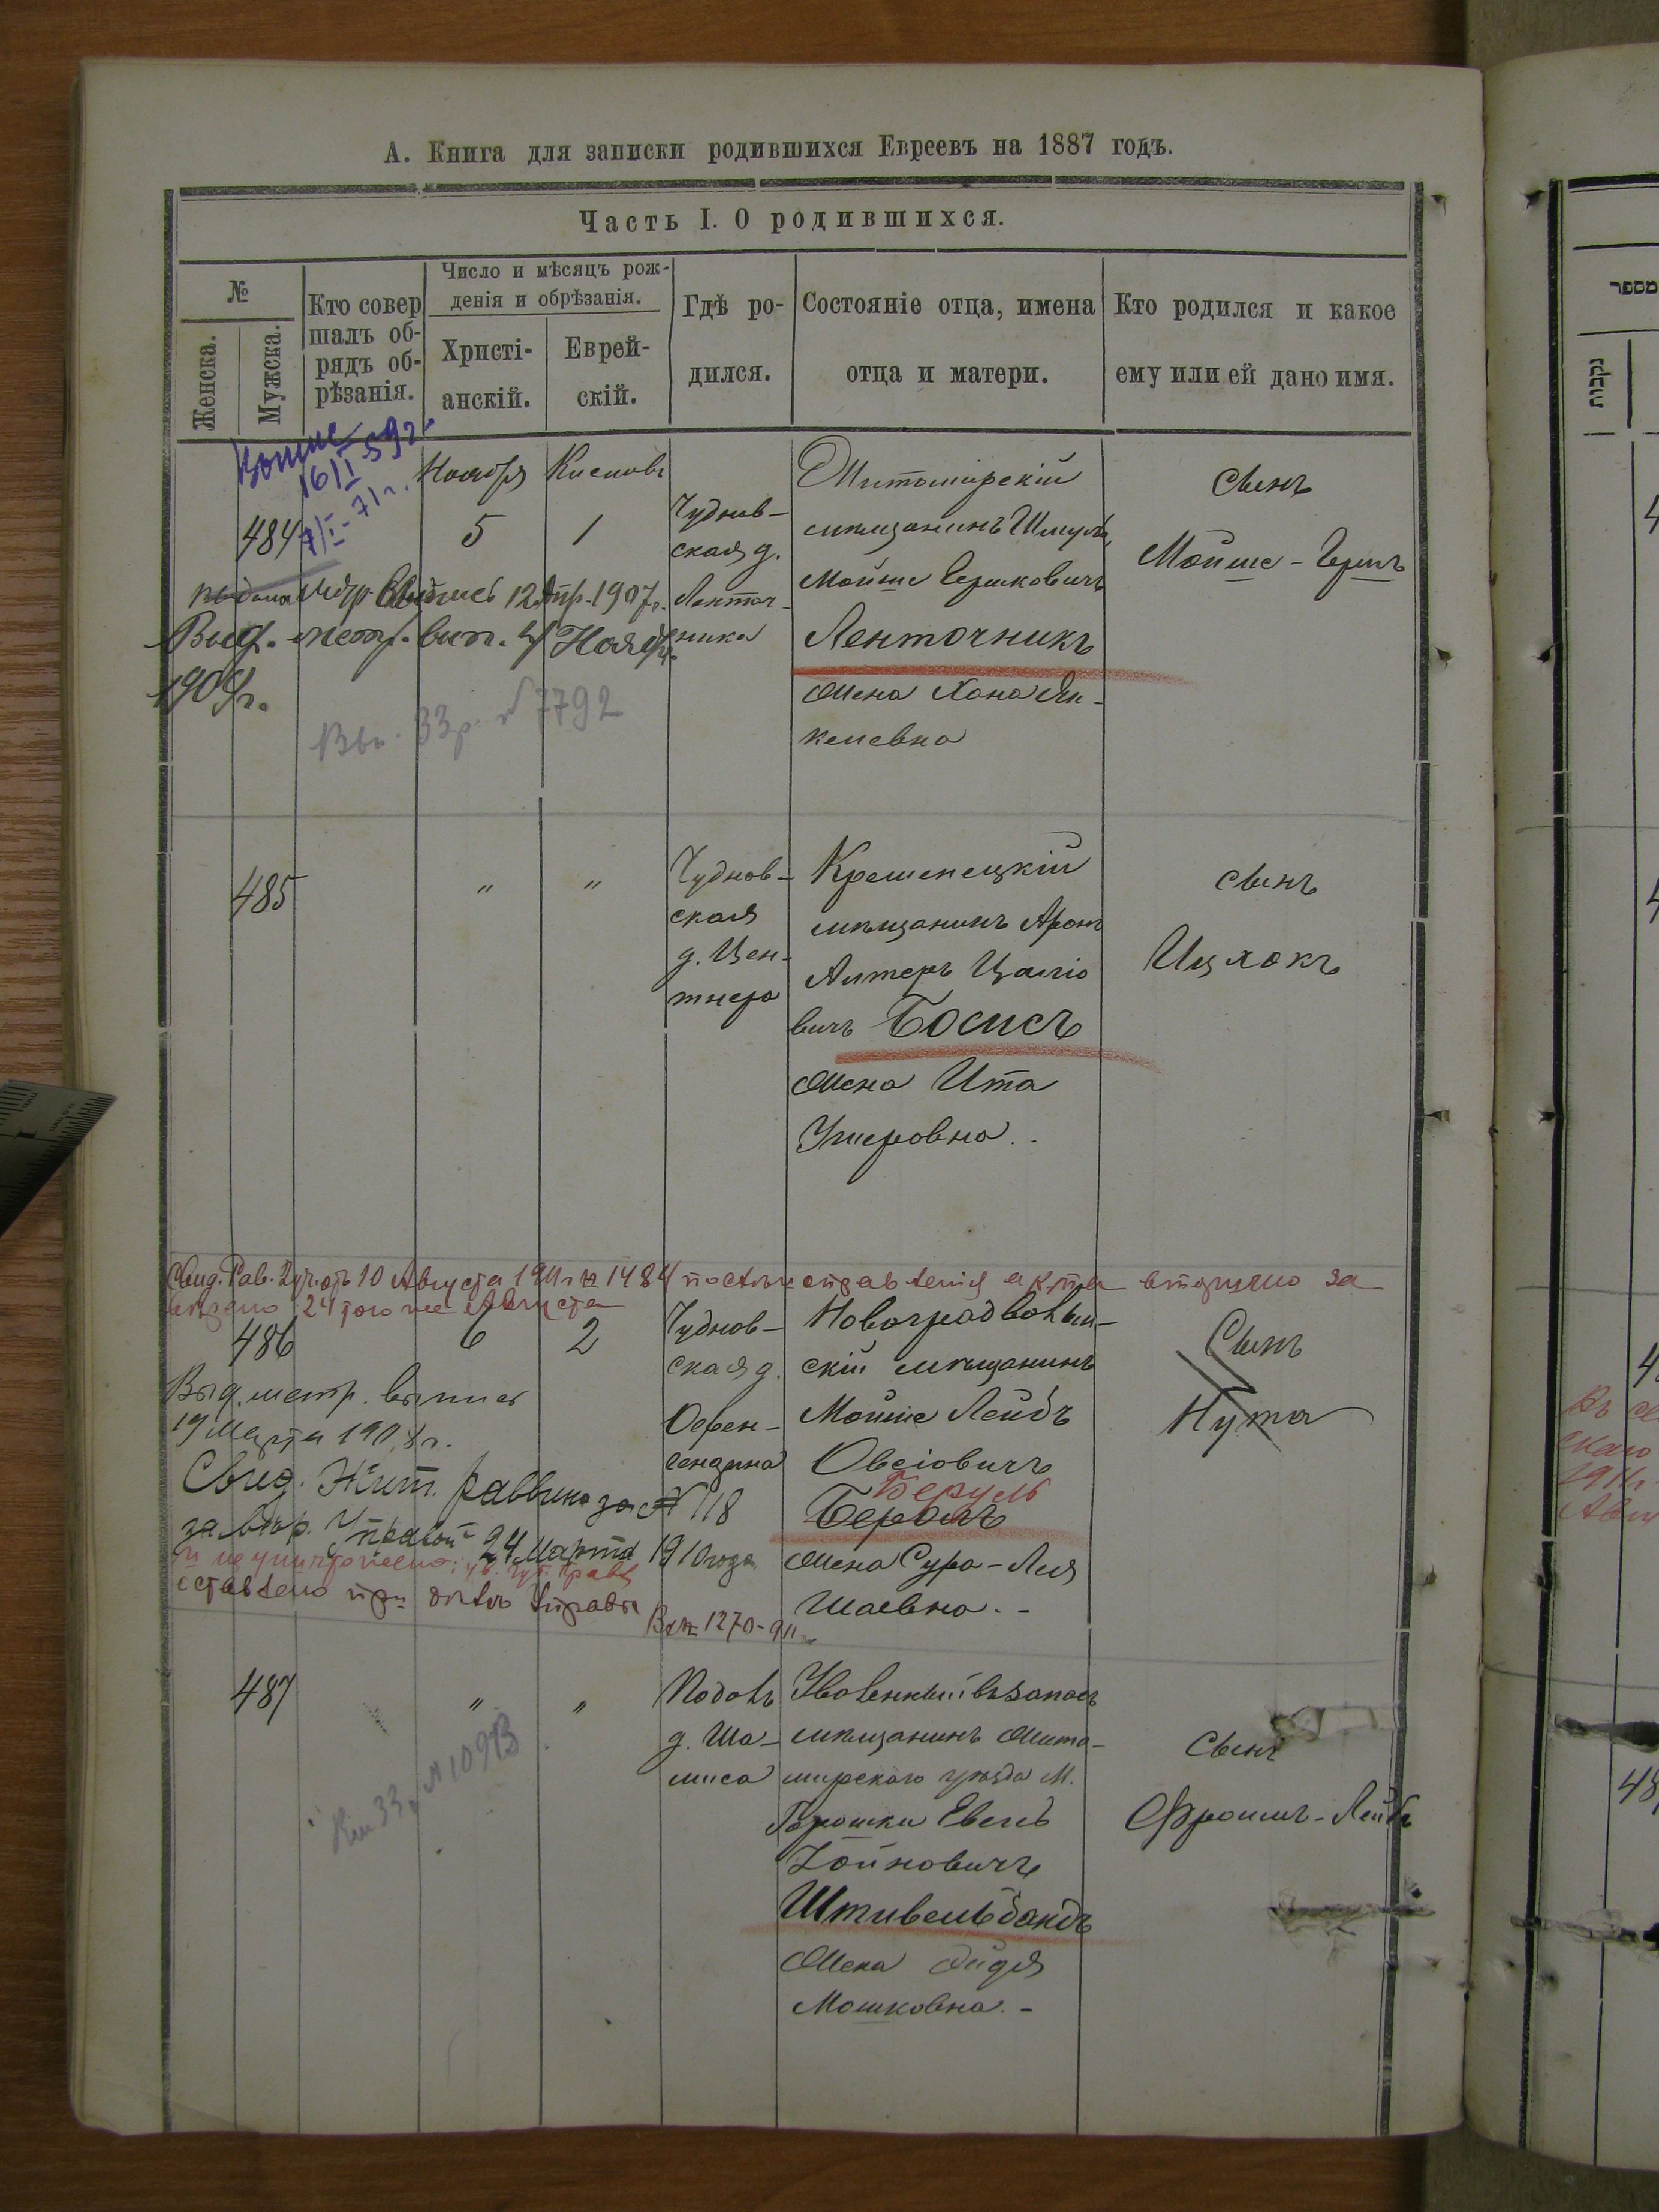 А. Книга для записки родившихся Евреевъ на 1887 годъ.
Часть I. О родившихся.
№
Женска.
Мужска.
Кто совер
шалъ об-
рядъ об-
рѣзанія.
Число и мѣсяцъ рож-
денія и обрѣзанія.
Христі-
анскій.
Еврей-
скій.
Гдѣ ро-
дился.
Состояніе отца, имена
отца и матери.
Кто родился и какое
ему или ей дано имя.
Копие
16/I 59г.
7/I-71г.
484
Ноября
5
Кислова
1
Чуднов-
ская д.
Ленточ-
ника
Житомірскій
мѣщанинъ Шмуль
Мойше Гершковичъ
Ленточникъ
Жена Хана Ян-
келевна
Сынъ
Мойше-Гершъ
метр. Выпись 12 Апр. 1907г.
Выд. метр. вып. 4 Ноября
190 г.
Вып. 33р. № 7792
485
"
"
Чуднов-
ская
д. Цен-
тнера
Кременецкій
мѣщанинъ Аронъ
Алтеръ Цаліо
вичъ Босисъ
Жена Ита
Ушеровна.
Сынъ
Ицхокъ
Свид. Рав. отъ 10 Августа 1911 г № 1484 послѣ справленія акта вторично за
24 того же Августа
486
6
2
Чуднов-
ская д.
Новоградволын-
скій мѣщанинъ
Мойше Лейбъ
Овсіовичъ
Беруль
Жена Сура-Лея
Шаевна.-
Сынъ
Нута
Выд. метр. выпись
19 Марта 190 г.
Свид. Жит. раввина за № 118
24 Марта 1910 года
оставлено при дѣлѣ Управы
Вх № 1270-911
487
"
"
Подолъ
д. Ша-
миса
Уволенный въ запасъ
мѣщанинъ Жито-
мирскаго уѣзда М.
Горошки Евель
Хойновичъ
Штивельбандъ
Жена Эйдя
Мошковна.-
Сынъ
Фроимъ-Лейбъ
33р № 10993
מספר
נקבות